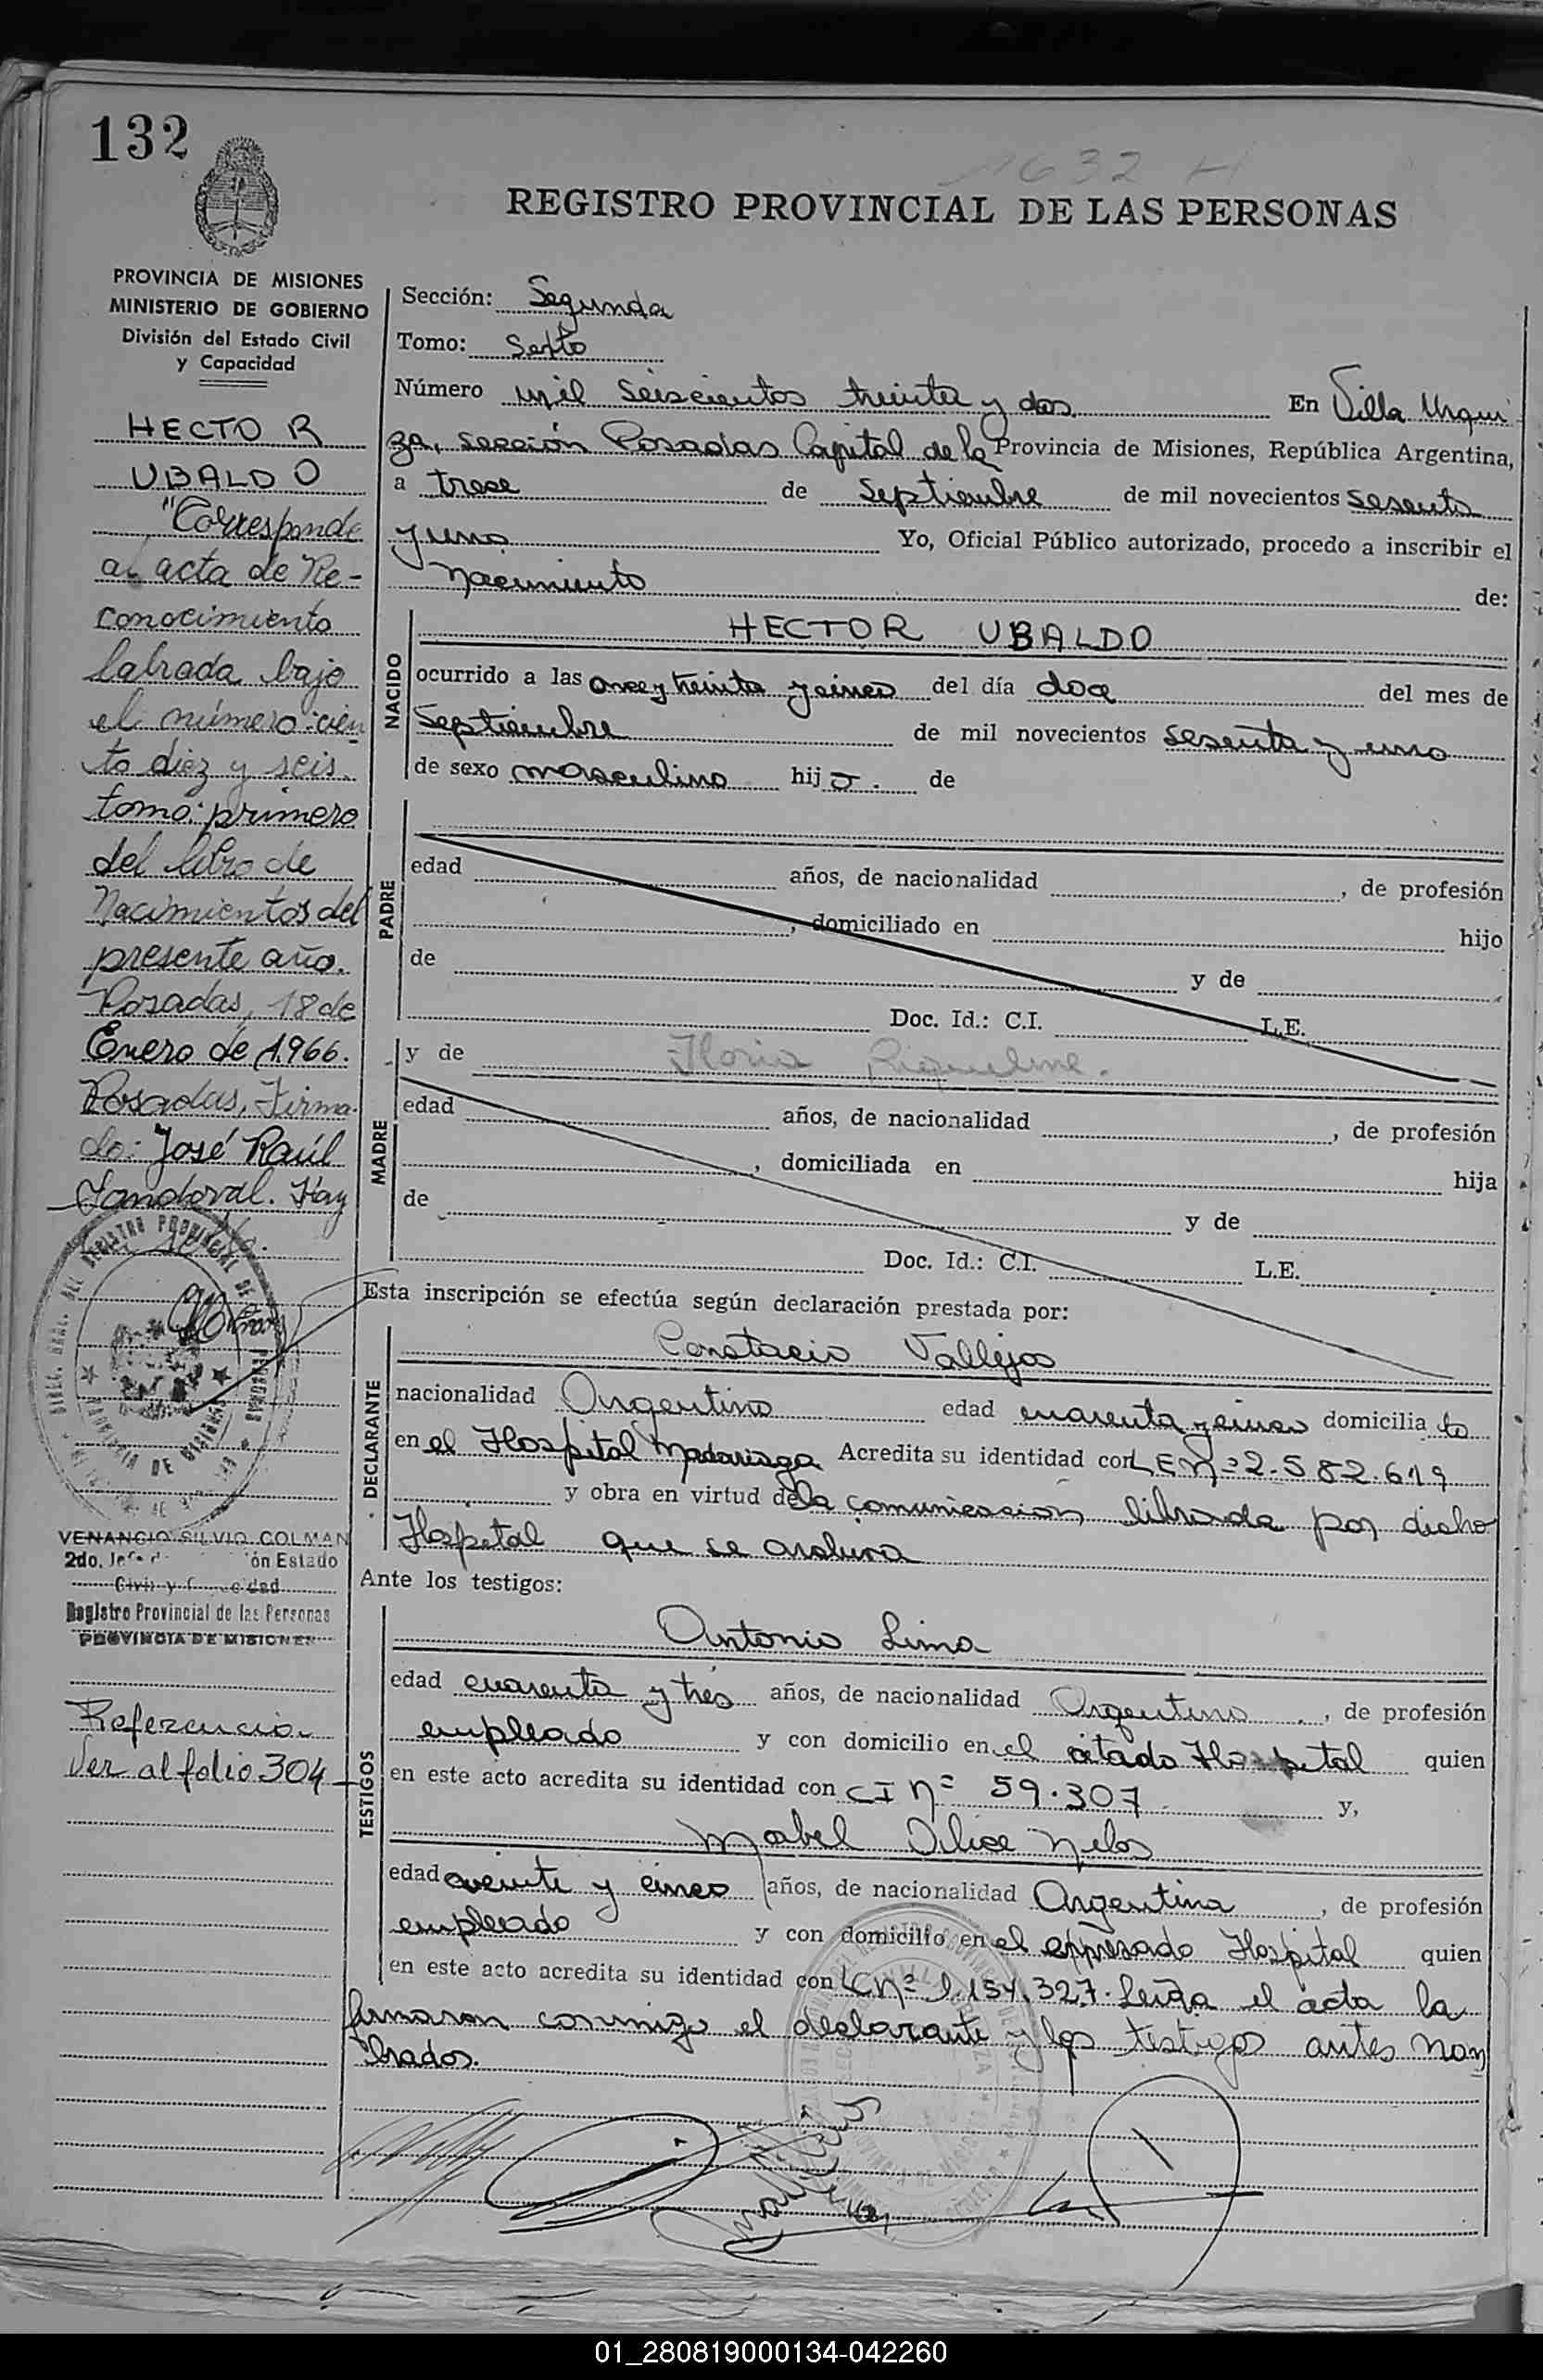 132
1632 H
REGISTRO PROVINCIAL DE LAS PERSONAS
PROVINCIA DE MISIONES
MINISTERIO DE GOBIERNO
División del Estado Civil
y Capacidad
HECTOR
UBALDO
"Corresponde
al acta de Re-
conocimiento
labrada bajo
el número: cien
to diez y seis.
tomo: primero
del libro de
Nacimientos del
presente año.
Posadas, 18 de
Enero de 1.966.
Posadas, Firma-
do: José Raúl
Sandoval. Hay
un sello.
DIREC. GRAL. DEL REGISTRO PROVINCIAL DE LAS PERSONAS
PROVINCIA DE MISIONES
VENANCIO SILVIO COLMAN
2do. Jefe d ón Estado
Civil y C dad
Registro Provincial de las Personas
PROVINCIA DE MISIONES
Referencia
Ver al folio 304
Sección: Segunda
Tomo: Sexto
Número mil seiscientos treinta y dos En Villa Urqui
za, sección Posadas Capital de la Provincia de Misiones, República Argentina,
a trece de Septiembre de mil novecientos sesenta
y uno Yo, Oficial Público autorizado, procedo a inscribir el
Nacimiento de:
NACIDO
HECTOR UBALDO
ocurrido a las once y treinta y cinco del día doce del mes de
Septiembre de mil novecientos sesenta y uno
de sexo masculino hijo. de
PADRE
edad años, de nacionalidad , de profesión
, domiciliado en hijo
de y de
Doc. Id.: C.I. L.E.
MADRE
y de Floria Riqueline.
edad años, de nacionalidad , de profesión
, domiciliada en hija
de y de
Doc. Id.: C.I. L.E.
Esta inscripción se efectúa según declaración prestada por:
DECLARANTE
Constacio Vallejos
nacionalidad Argentino edad cuarenta y cinco domicilia to
en el Hospital Madariaga Acredita su identidad con L E nº 2.582.619
y obra en virtud de la comunicación librada por dicho
Hospital que se archiva
Ante los testigos:
TESTIGOS
Antonio Lima
edad cuarenta y tres años, de nacionalidad Argentino , de profesión
empleado y con domicilio en el citado Hospital quien
en este acto acredita su identidad con CI nº 59.307 y,
Mabel Alice
edad veinte y cinco años, de nacionalidad Argentina , de profesión
empleado y con domicilio en el expresado Hospital quien
en este acto acredita su identidad con LC nº 1.154.327. Leída el acta la
firmaron conmigo el declarante y los testigos antes nom
brados.
01_280819000134-042260